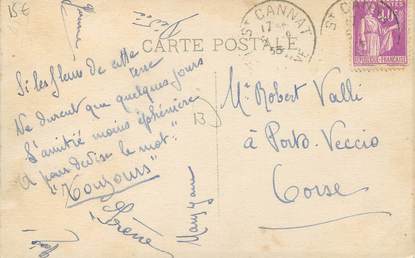 15€
CARTE POSTALE
ST CANNAT
17
35
ST CANNAT
40c
Si les fleurs de cette
terre
Ne durent que quelques jours
L'amitié moins éphémère
A pour devise le mot:
"Toujours"
Irène
13
Mr Robert Valli
à Porto-Veccio
Corse